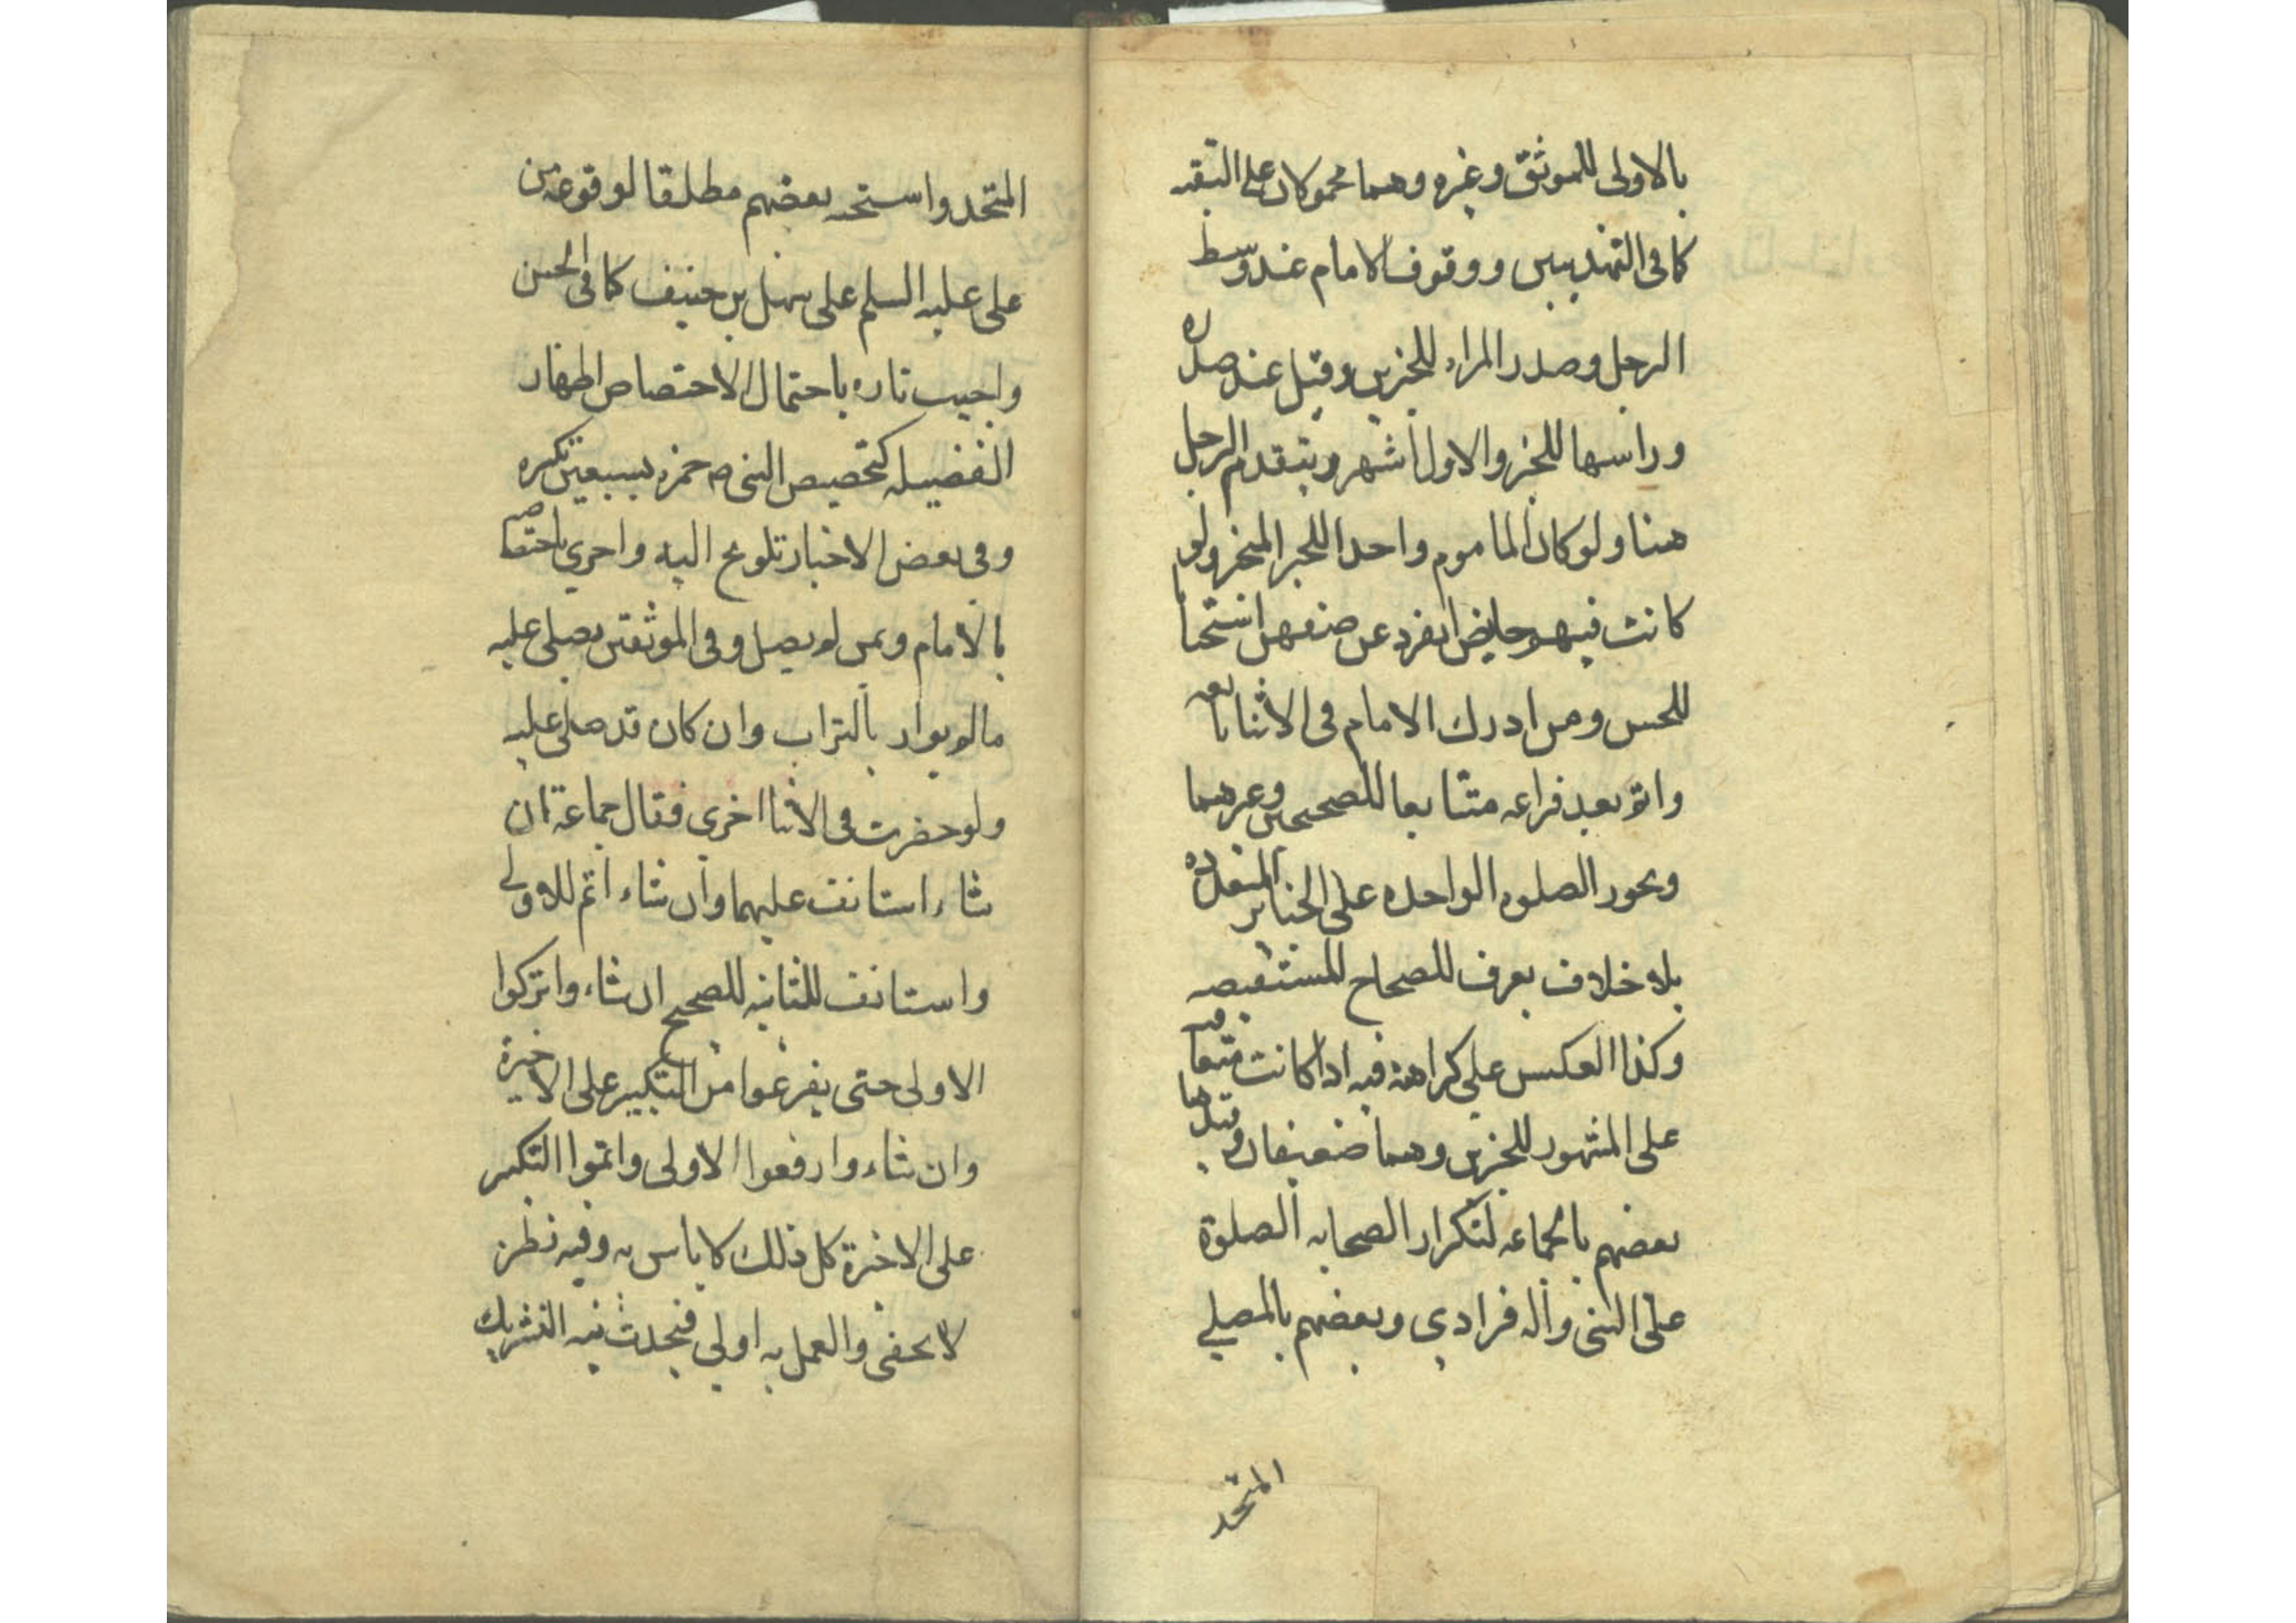 بالاولى للموثق وغيره وهما محمولان على التقيه
كما فى التهذيبين ووقوف الامام عند وسط
الرجل وصدر المراه للخبرين وقيل عند صدره
وراسها للخبر والاول اشهر ويتقدم الرجل
هنا ولو كان الماموم واحدا للخبر المنجبر ولو
كانت فيهم حايض انفرد عن صفهن استحبابا
للحسن ومن ادرك الامام فى الاثنا تابعه
واتم بعد فراغه متتابعا للصحيحين وغيرهما
ويجوز الصلوه الواحده على الجنايز المتعدده
بلا خلاف يعرف للصحاح المستفيضه
وكذا العكس على كراهة فيه اذا كانت متعاقبه
على المشهور للخبرين وهما ضعيفان وقيدها
بعضهم بالجماعه لتكرار الصحابه الصلوة
على النبى واله فرادي وبعضهم بالمصلي
المتحد
المتحد واستحبه بعضهم مطلقا لوقوعه من
على عليه السلم على سهل بن حنيف كما فى الحسن
واجيب تاره باحتمال الاختصاص اظهار
الفضيله كتخصيص النبى ص حمزه بسبعين تكبيره
وفى بعض الاخبار تلويح اليه واخري باختصاصه
بالامام وبمن لم يصل وفى الموثقين يصلى عليه
مالم يوار بالتراب وان كان قد صلى عليه
ولو حضرت فى الاثنا اخري فقال جماعة ان
شاء استانف عليهما وان شاء اتم للاولى
واستانف للثانيه للصحيح ان شاء واتركوا
الاولى حتى يفرغوا من التكبير على الاخيرة
وان شاء وارفعوا الاولى واتموا التكبير
على الاخيرة كل ذلك لا باس به وفيه نظر
لا يخفى والعمل به اولي فيحدث نيه التشريك